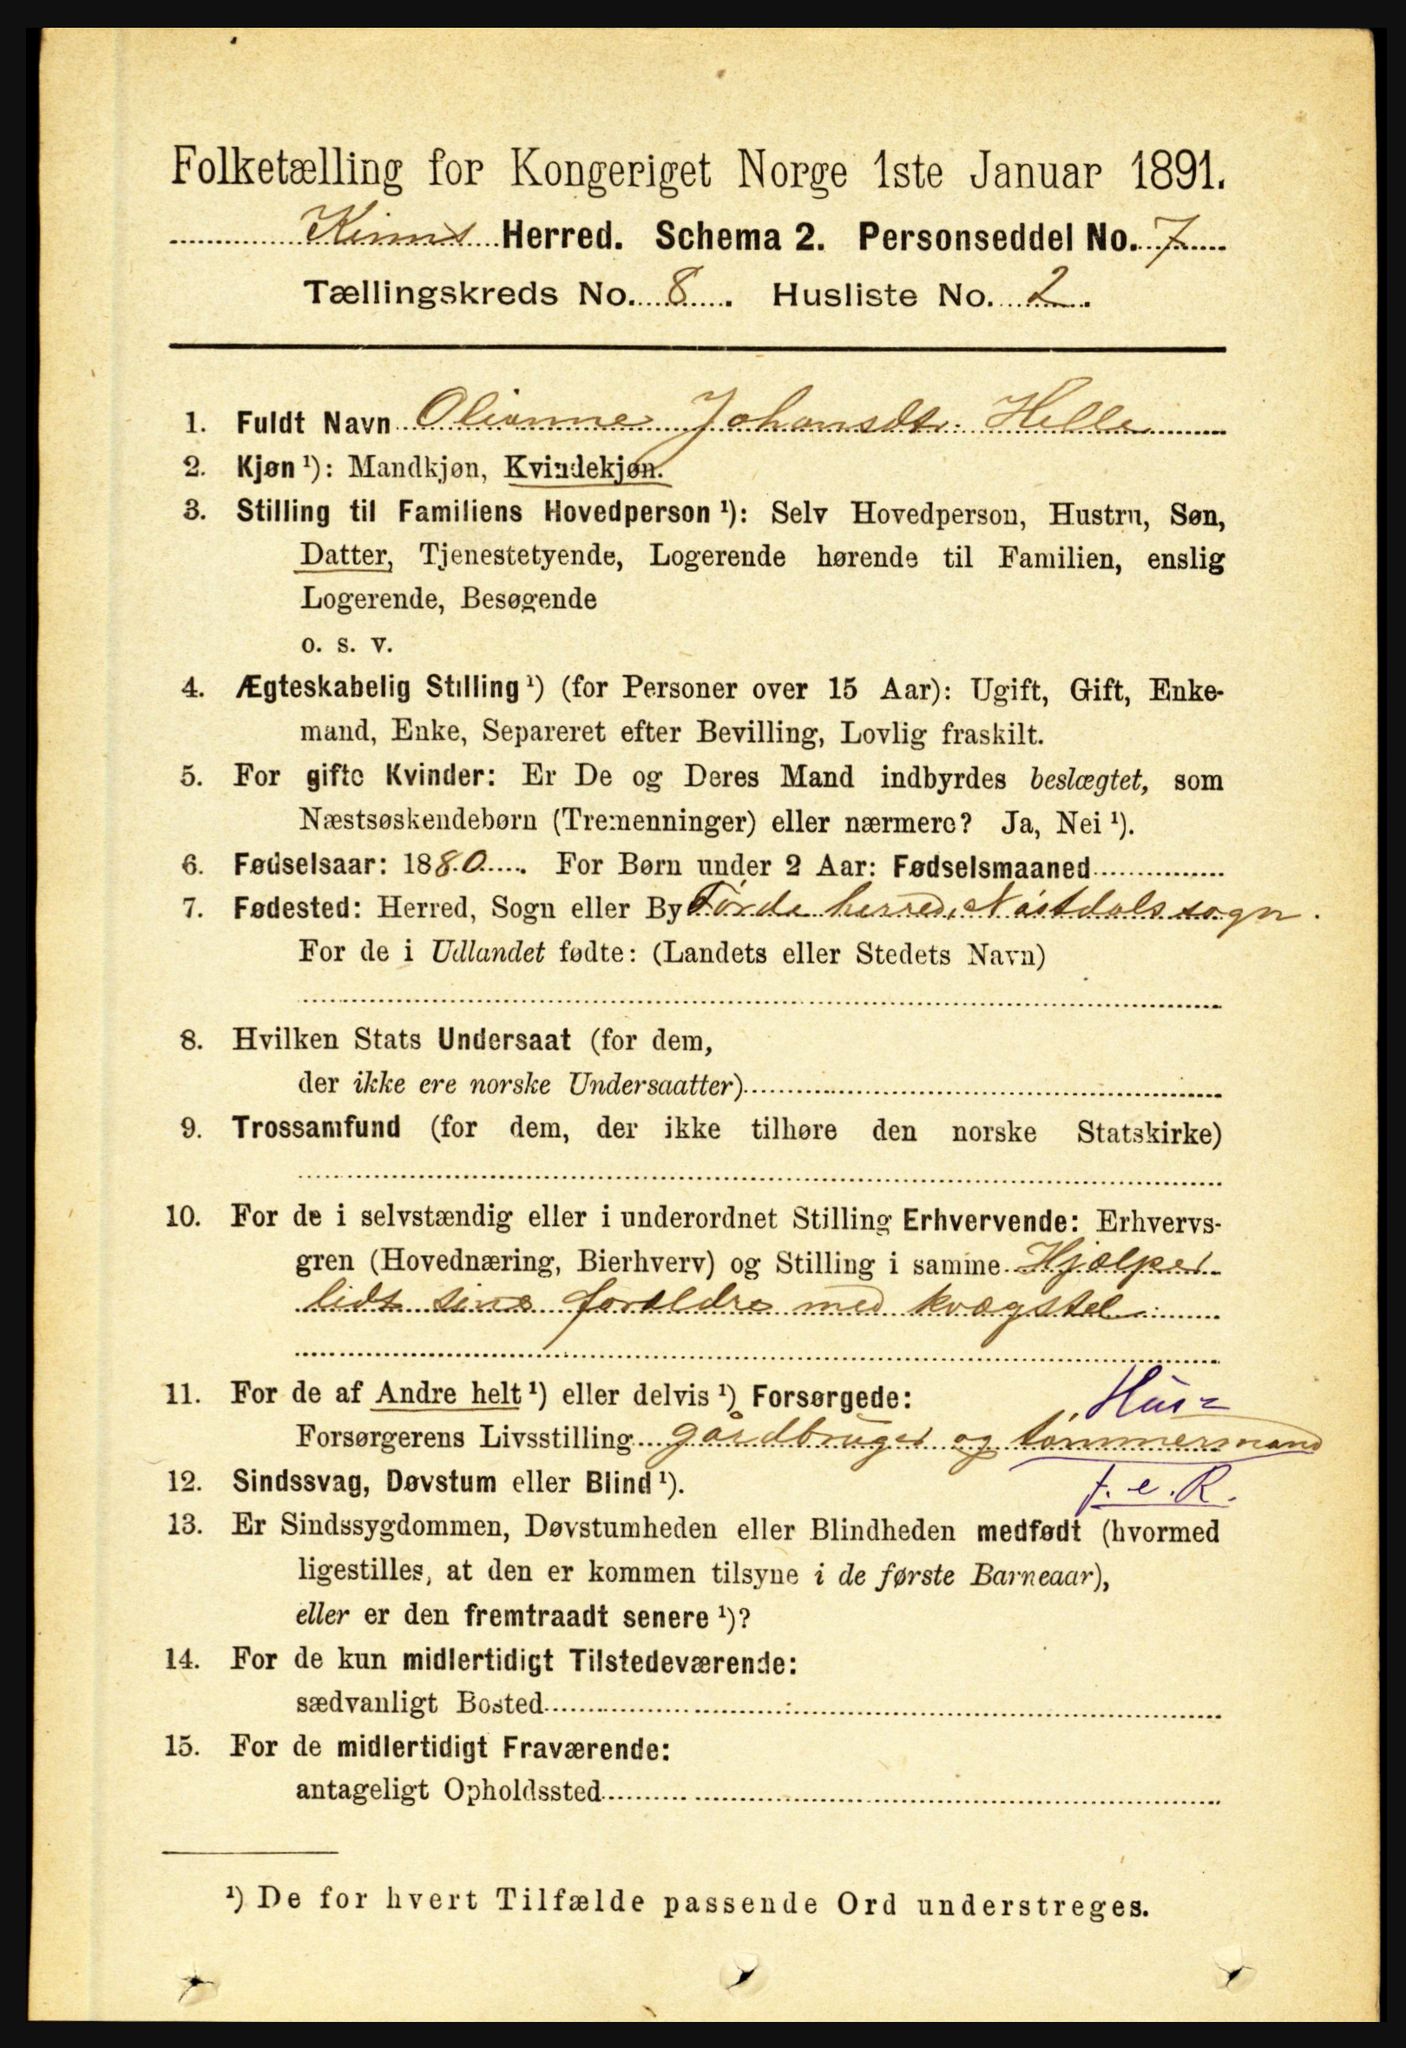 Folketælling for Kongeriget Norge 1ste Januar 1891.
Kinns Herred. Schema 2. Personseddel No. 7
Tællingskreds No. 8. Husliste No. 2.
1. Fuldt Navn Olianne Johansdtr. Helle
2. Kjøn ¹): Mandkjøn, Kvindekjøn.
3. Stilling til Familiens Hovedperson ¹): Selv Hovedperson, Hustru, Søn,
Datter, Tjenestetyende, Logerende hørende til Familien, enslig
Logerende, Besøgende
o. s. v.
4. Ægteskabelig Stilling ¹) (for Personer over 15 Aar): Ugift, Gift, Enke-
mand, Enke, Separeret efter Bevilling, Lovlig fraskilt.
5. For gifte Kvinder: Er De og Deres Mand indbyrdes beslægtet, som
Næstsøskendebørn (Tremenninger) eller nærmere? Ja, Nei ¹).
6. Fødselsaar: 1880. For Børn under 2 Aar: Fødselsmaaned
7. Fødested: Herred, Sogn eller By Førde herred, Nøstdals sogn.
For de i Udlandet fødte: (Landets eller Stedets Navn)
8. Hvilken Stats Undersaat (for dem,
der ikke ere norske Undersaatter)
9. Trossamfund (for dem, der ikke tilhøre den norske Statskirke)
10. For de i selvstændig eller i underordnet Stilling Erhvervende: Erhvervs-
gren (Hovednæring, Bierhverv) og Stilling i samme Hjælper
lidt sine forældre med kvægstel
11. For de af Andre helt ¹) eller delvis ¹) Forsørgede: Hus=
Forsørgerens Livsstilling gårdbruger og tømmermand
12. Sindssvag, Døvstum eller Blind ¹). f. e. R.
13. Er Sindssygdommen, Døvstumheden eller Blindheden medfødt (hvormed
ligestilles, at den er kommen tilsyne i de første Barneaar),
eller er den fremtraadt senere ¹)?
14. For de kun midlertidigt Tilstedeværende:
sædvanligt Bosted
15. For de midlertidigt Fraværende:
antageligt Opholdssted
¹) De for hvert Tilfælde passende Ord understreges.